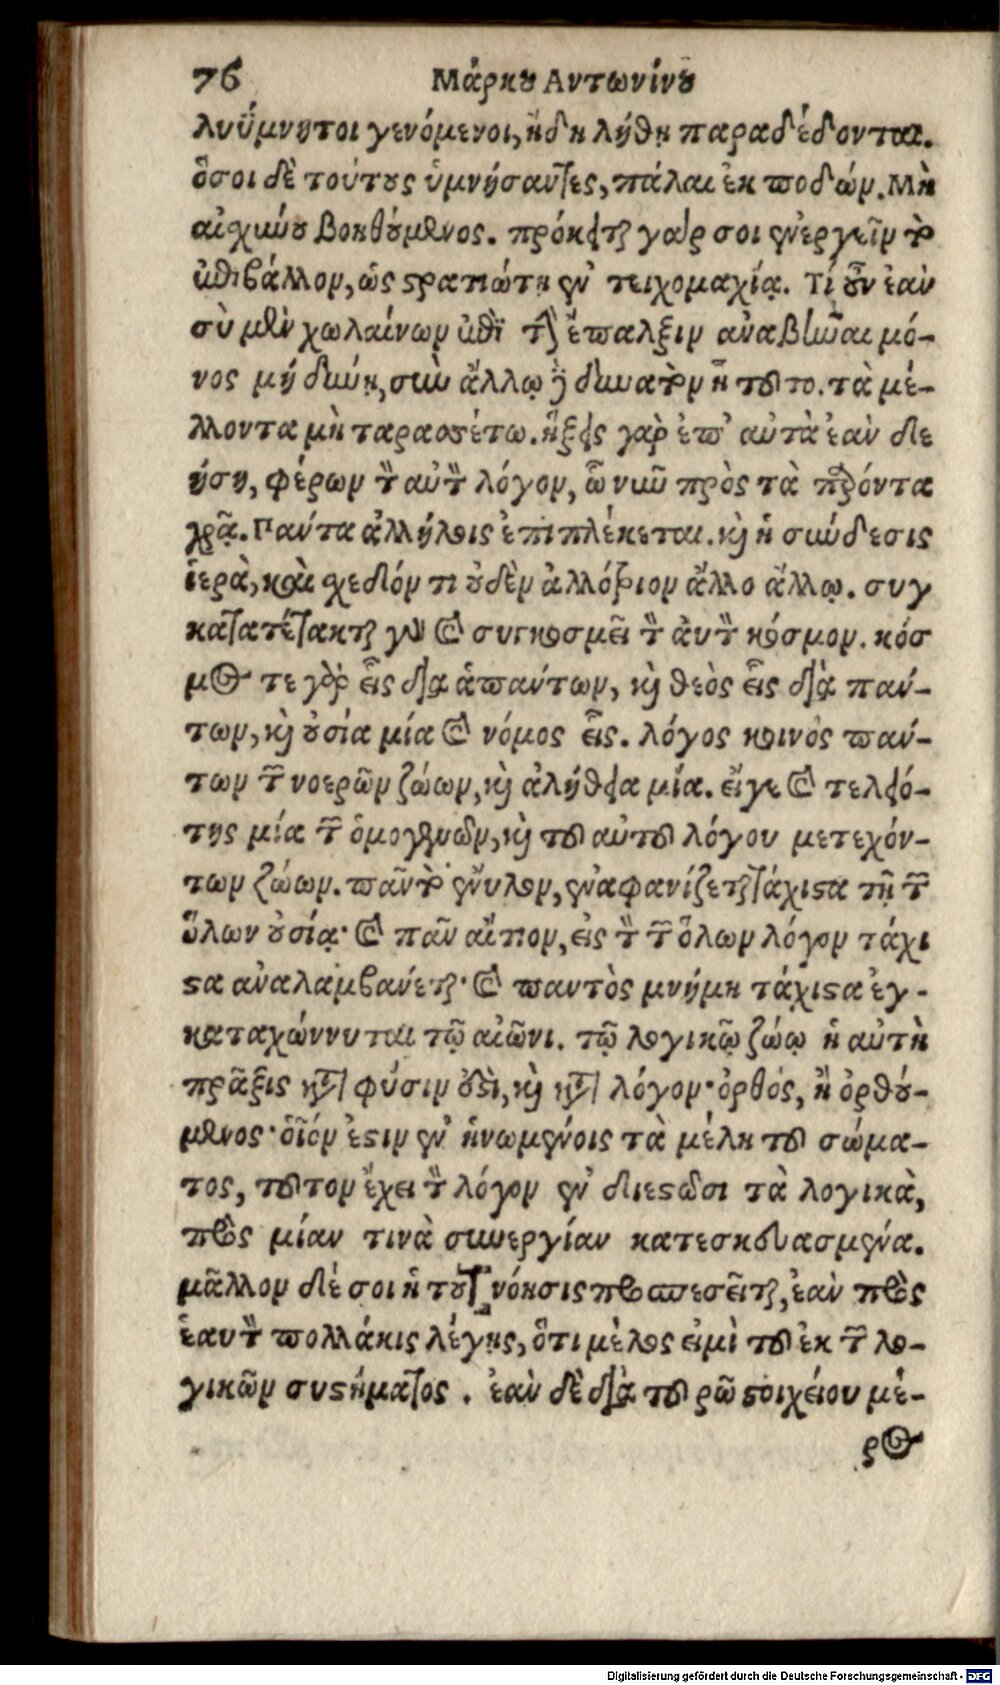 76 Μάρκου Αντωνίνου
λυΰμνητοι γενόμενοι, ἤδη λήθῃ παραδέδονται.
ὅσοι δὲ τούτους ὑμνήσαντες, πάλαι ἐκ ποδών. Μὴ
αἰσχύνου βοηθούμενος. πρόκειται γάρ σοι ἐνεργεῖν τὸ
ἐπιβάλλον, ὡς στρατιώτῃ ἐν τειχομαχίᾳ. Τί οὖν ἐὰν
σὺ μὲν χωλαίνων ἐπὶ τὴν ἔπαλξιν ἀναβῆναι μό-
νος μὴ δύνῃ, σὺν ἄλλῳ δὲ δυνατὸν ᾖ τοῦτο. τὰ μέ-
λλοντα μὴ ταρασσέτω. ἥξεις γὰρ ἐπ' αὐτὰ ἐὰν δε
ήσῃ, φέρων τὸν αὐτὸν λόγον, ᾧ νῦν πρὸς τὰ παρόντα
χρᾷ. Πάντα ἀλλήλοις ἐπιπλέκεται. καὶ ἡ σύνδεσις
ἱερὰ, καὶ σχεδόν τι οὐδὲν ἀλλότριον ἄλλο ἄλλῳ. συγ
κατατέτακται γὰρ καὶ συγκοσμεῖ τὸν αὐτὸν κόσμον. κόσ
μος τε γὰρ εἷς διὰ ἁπάντων, καὶ θεὸς εἷς διὰ πάν-
των, καὶ οὐσία μία καὶ νόμος εἷς. λόγος κοινὸς πάν-
των τῶν νοερῶν ζώων, καὶ ἀλήθεια μία. εἴγε καὶ τελειό-
της μία τῶν ὁμογενῶν, καὶ τοῦ αὐτοῦ λόγου μετεχόν-
των ζώων. πᾶν τὸ ἔνυλον, ἐναφανίζεται τάχιστα τῇ τῶν
ὅλων οὐσίᾳ· καὶ πᾶν αἴτιον, εἰς τὸν τῶν ὅλων λόγον τάχι
στα ἀναλαμβάνεται· καὶ παντὸς μνήμη τάχιστα ἐγ-
καταχώννυται τῷ αἰῶνι. τῷ λογικῷ ζώῳ ἡ αὐτὴ
πρᾶξις κατὰ φύσιν ἐστὶ, καὶ κατὰ λόγον· ὀρθός, ἢ ὀρθού-
μενος· οἷόν ἐστιν ἐν ἡνωμένοις τὰ μέλη τοῦ σώμα-
τος, τοῦτον ἔχει τὸν λόγον ἐν διεστῶσι τὰ λογικὰ,
πρὸς μίαν τινὰ συνεργίαν κατεσκευασμένα.
μᾶλλον δέ σοι ἡ τούτου νόησις προσπεσεῖται, ἐὰν πρὸς
ἑαυτὸν πολλάκις λέγῃς, ὅτι μέλος εἰμὶ τοῦ ἐκ τῶν λο-
γικῶν συστήματος. ἐὰν δὲ διὰ τοῦ ρῶ στοιχείου μέ-
ρος
Digitalisierung gefördert durch die Deutsche Forschungsgemeinschaft - DFG